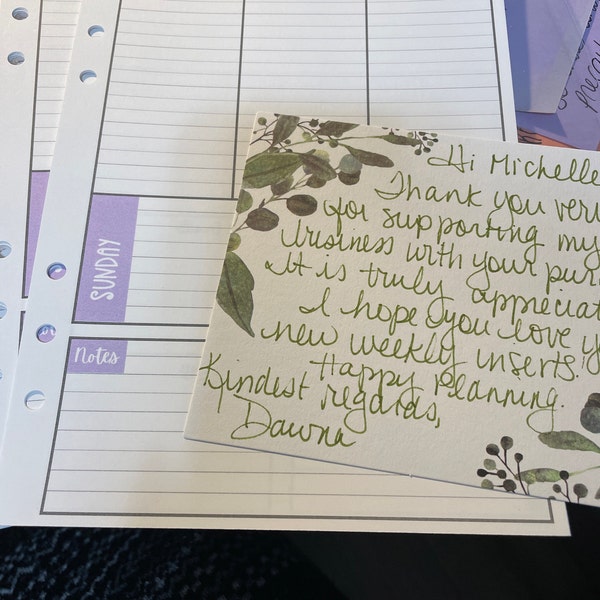 SUNDAY
Notes
Hi Michelle
Thank you very
for supporting my
business with your pur
It is truly appreciat
I hope you love y
new weekly inserts!
Happy Planning.
Kindest regards,
Dawna